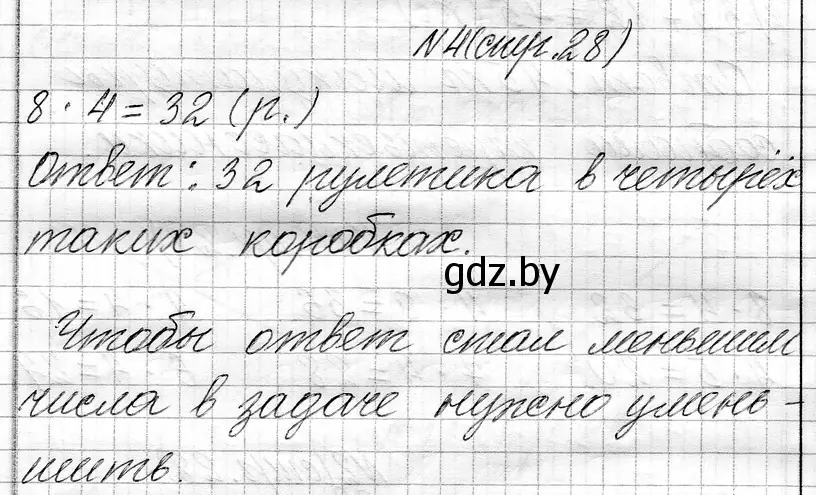 №4(стр.28)
8 · 4 = 32 (р.)
Ответ: 32 рулетика в четырёх
таких коробках.
gdz.by
Чтобы ответ стал меньшим
числа в задаче нужно умень-
шить.